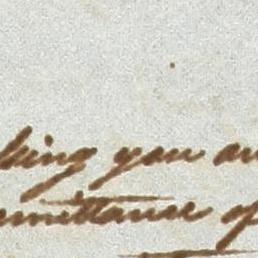 king you an
emittance of